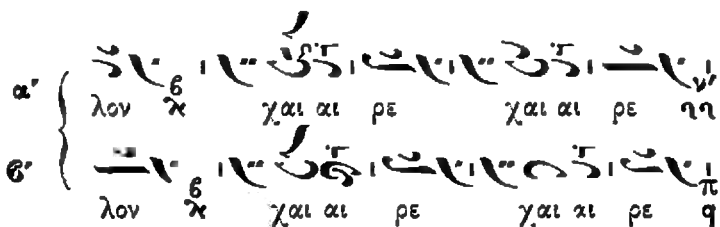 α″
λον χαι αι ρε χαι αι ρε
ϐ″
λον χαι αι ρε χαι αι ρε